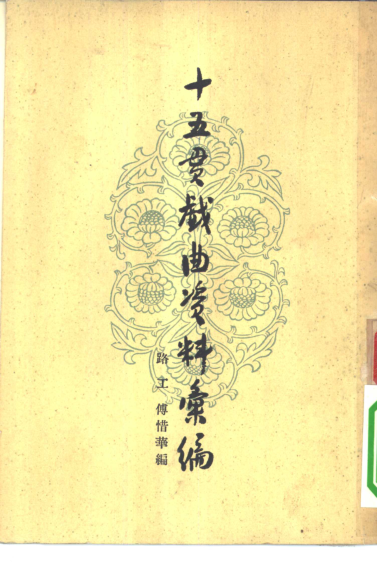 十五贯戯曲资料彙编
路工 傅惜華編